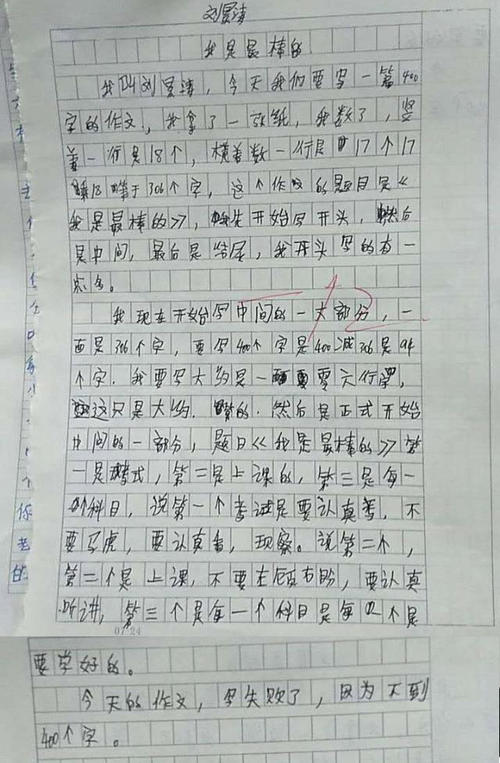 刘昱涛
我是最棒的
我叫刘昱涛,今天我们要写一篇400
字的作文,我拿了一张纸,我数了,竖
着一行是18个,横着数一行是17个17
乘18等于306个字,这个作文的题目是《
我是最棒的》,先开始写开头,然后
是中间,最后是结尾,我开头写的有一
点多。
我现在开始写中间的一大部分,一
面是306个字,要写400个字是400减306是94
个字.我要写大约是一面零六行,
这只是大约.然后是正式开始
中间的一部分,题目《我是最棒的》第
一是考试,第二是上课的,第三是每一
个科目,说第一个考试是要认真考,不
要马虎,要认真看,观察。说第二个,
第二个是上课,不要左顾右盼,要认真
听讲,第三个是每一个科目是每个是
07:24
要学好的。
今天的作文,写失败了,因为不到
400个字。